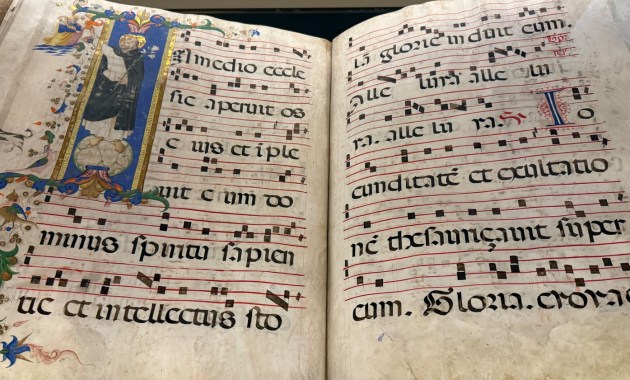 In medio eccle
sie aperuit os
e ius et iple
uit e um do
minus spiritu sapien
tie et intellectus sto
la glorie induit eum.
alle lura alle lui
ra. alle lu ra. Io
cunditatē et exultatio
nē thesauriçauit super
eum. Gloria. evovae